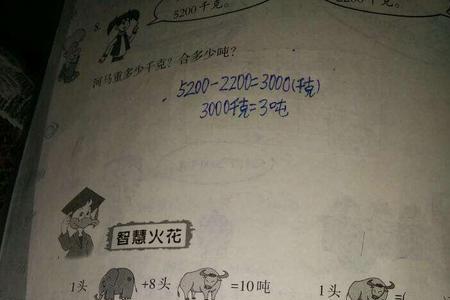 8.
5200千克。
2200千克。
河马重多少千克？合多少吨？
5200-2200=3000(千克)
3000千克=3吨
智慧火花
1头 +8头 =10吨
1头 =(